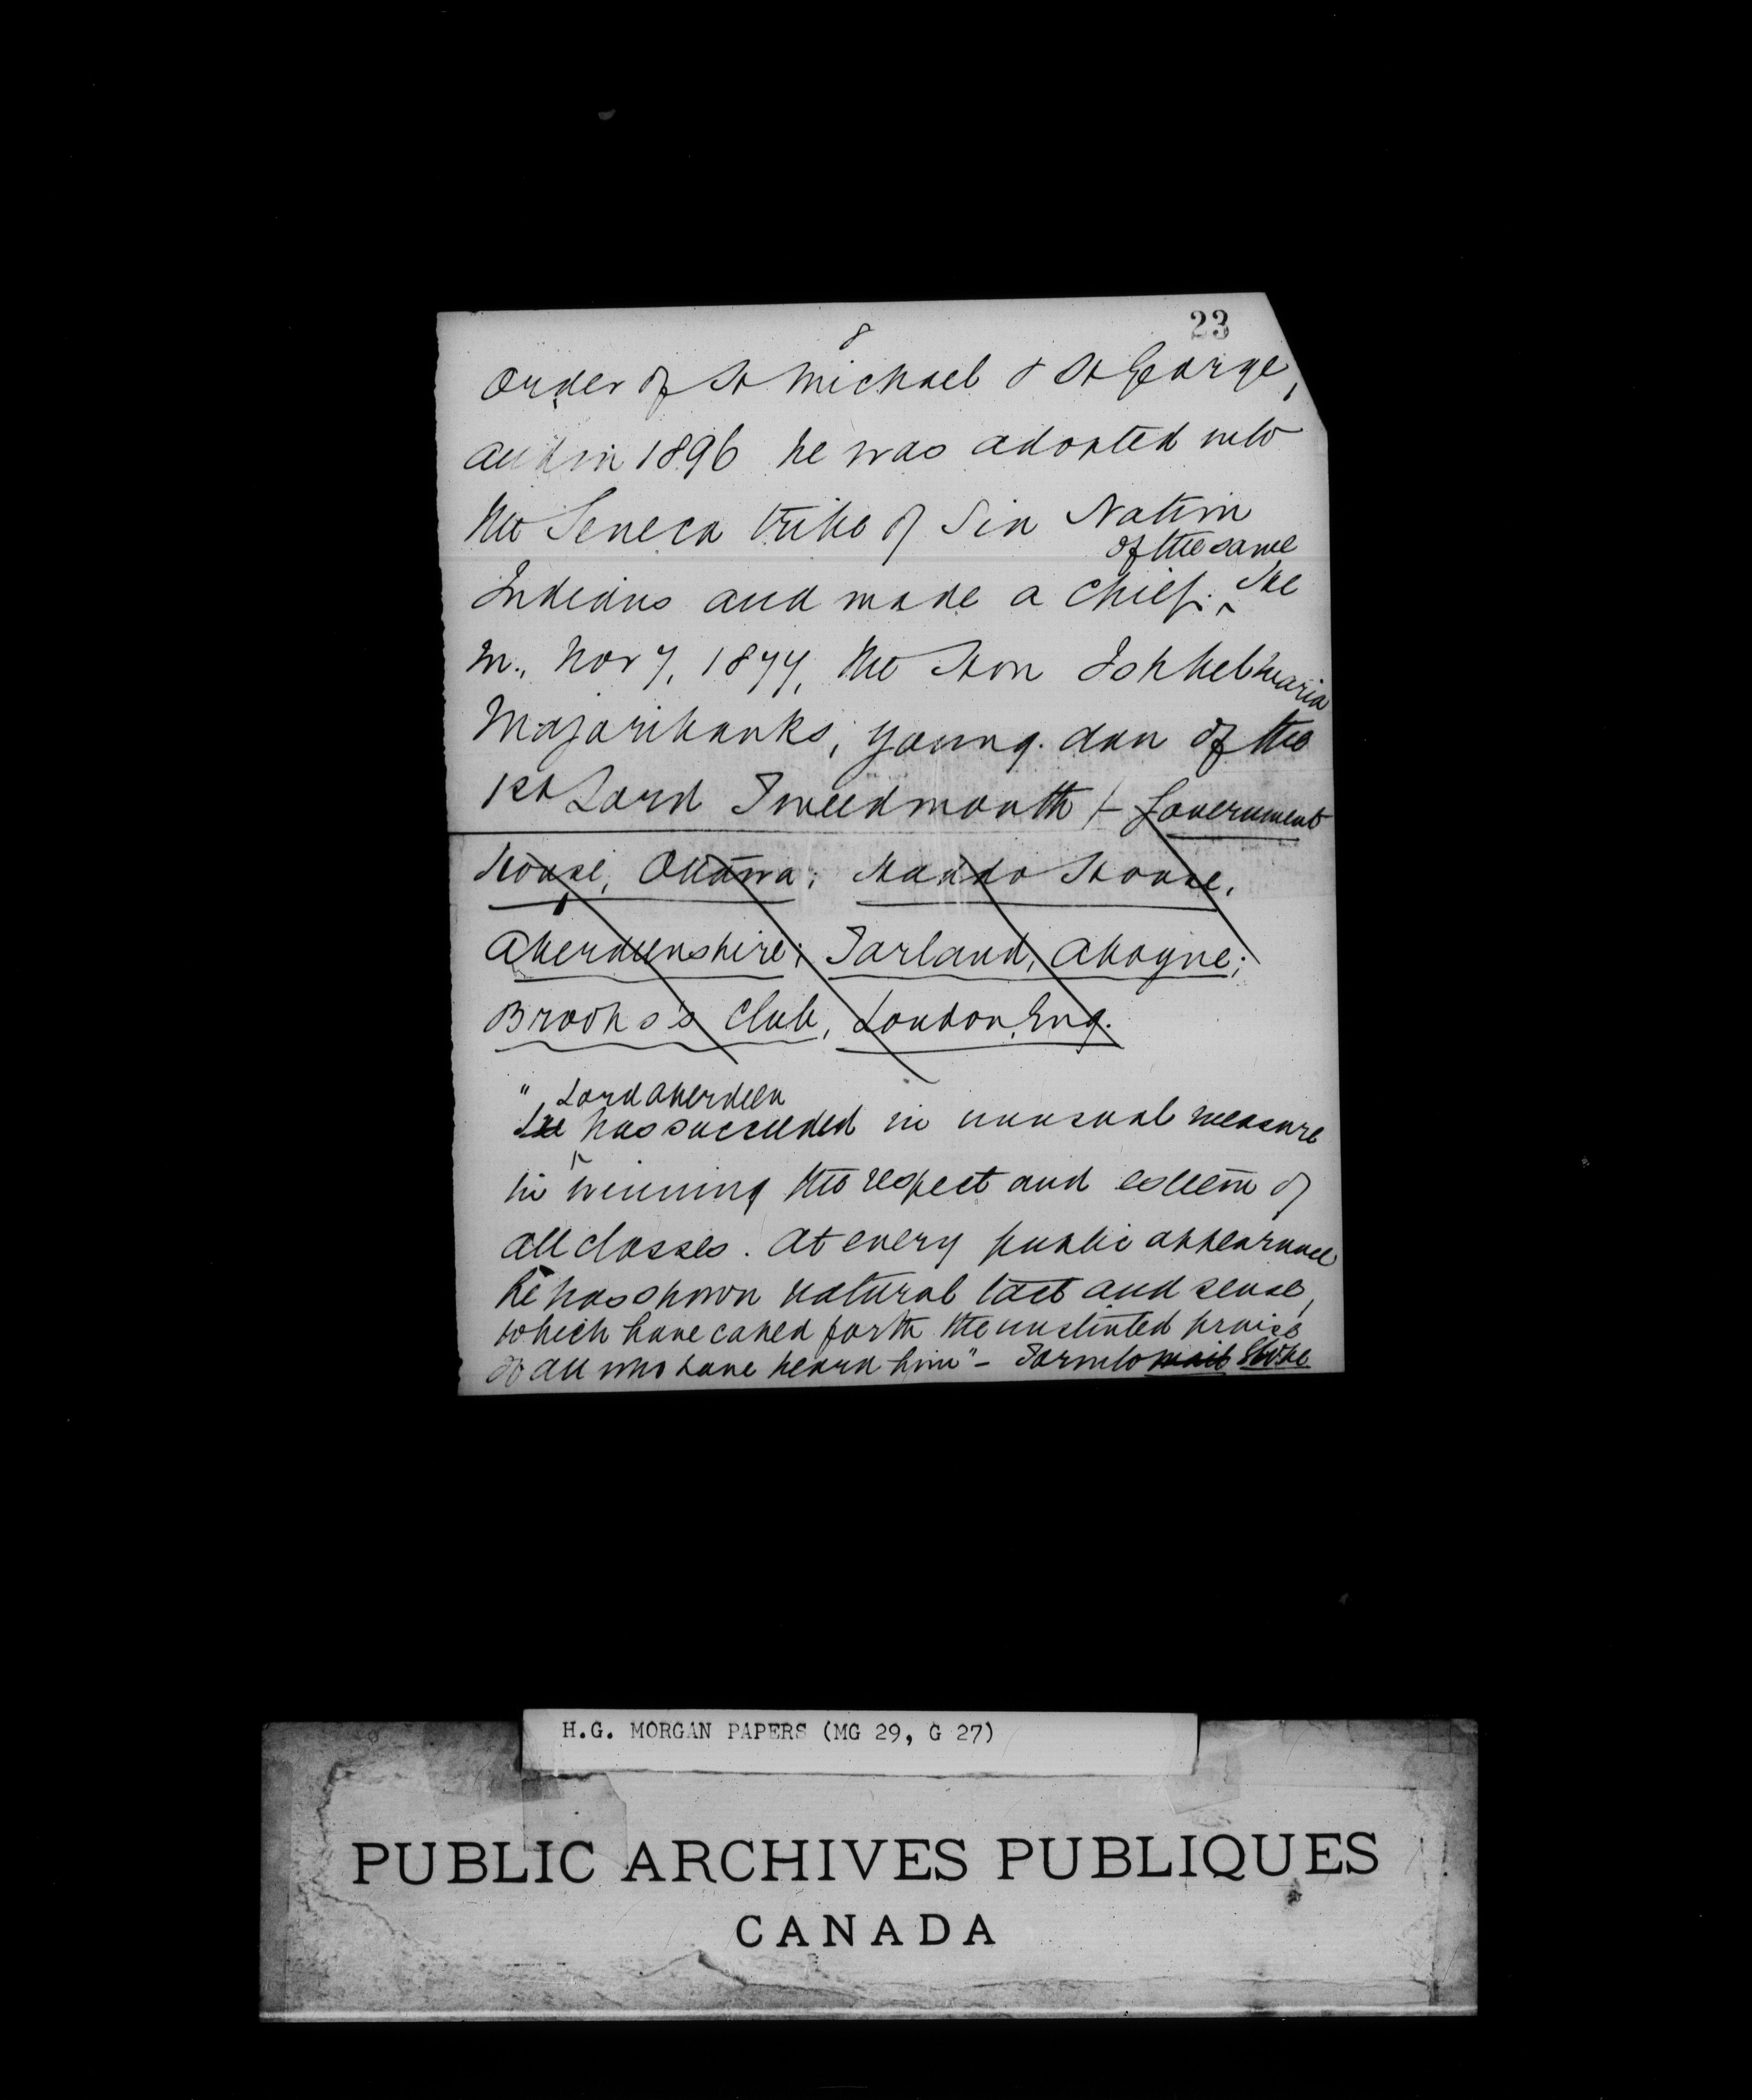 23
8
Order of St Michael & St George,
and in 1896 he was adopted into
the Seneca tribe of Six Nation
of the same
Indians and made a Chief. He
m., Nov 7, 1877, the Hon Ishbel Maria
Majoribanks, young. dau of the
1st Lord Tweedmouth - Government
House, Ottawa; Haddo House,
Aberdeenshire; Tarland, Aboyne;
Brooks's Club, London, Eng.
" Lord Aberdeen
He has succeeded in unusual measure
in winning the respect and esteem of
all classes. At every public appearance
he has shown natural tact and sense,
which have called forth the unstinted praise
of all who have heard him" - Toronto Mail Globe
H.G. MORGAN PAPERS (MG 29, G 27)
PUBLIC ARCHIVES PUBLIQUES
CANADA